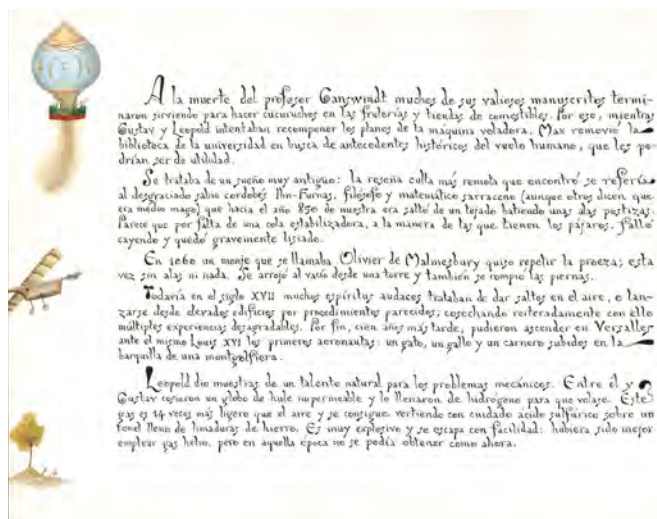 A la muerte del profesor Ganswindt muchos de sus valiosos manuscritos termi-
naron sirviendo para hacer cucuruchos en las fruterías y tiendas de comestibles. Por eso, mientras
Gustav y Leopold intentaban recomponer los planos de la máquina voladora, Max removió la
biblioteca de la universidad en busca de antecedentes históricos del vuelo humano, que les po-
drían ser de utilidad.
Se trataba de un sueño muy antiguo: la reseña culta más remota que encontró se refería
al desgraciado sabio cordobés Ibn-Furnas, filósofo y matemático sarraceno (aunque otros dicen que
era medio mago) que hacia el año 850 de nuestra era saltó de un tejado batiendo unas alas postizas.
Parece que por falta de una cola estabilizadora, a la manera de las que tienen los pájaros, falló
cayendo y quedó gravemente lisiado.
En 1060 un monje que se llamaba Olivier de Malmesbury quiso repetir la proeza; esta
vez sin alas ni nada. Se arrojó al vacío desde una torre y también se rompió las piernas.
Todavía en el siglo XVII muchos espíritus audaces trataban de dar saltos en el aire, o lan-
zarse desde elevados edificios por procedimientos parecidos; cosechando reiteradamente con ello
múltiples experiencias desagradables. Por fin, cien años más tarde, pudieron ascender en Versalles
ante el mismo Louis XVI los primeros aeronautas: un gato, un gallo y un carnero subidos en la
barquilla de una montgolfiera.
Leopold dio muestras de un talento natural para los problemas mecánicos. Entre él y
Gustav cosieron un globo de hule impermeable y lo llenaron de hidrógeno para que volase. Este
gas es 14 veces más ligero que el aire y se consigue vertiendo con cuidado ácido sulfúrico sobre un
tonel lleno de limaduras de hierro. Es muy explosivo y se escapa con facilidad: hubiera sido mejor
emplear gas helio, pero en aquella época no se podía obtener como ahora.